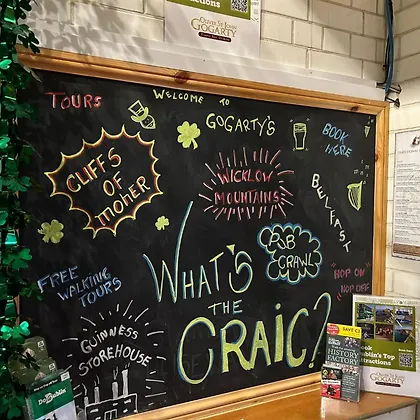 OLIVER ST. JOHN
GOGARTY
TOURS
WELCOME TO
GOGARTY'S
BOOK
HERE
CLIFFS
OF
MOHER
WICKLOW
MOUNTAINS
BELFAST
PUB
CRAWL
FREE
WALKING
TOURS
WHAT'S
THE
CRAIC?
HOP ON
HOP OFF
GUINNESS
STOREHOUSE
SAVE €2
HISTORY
FACTORY
Dublin's Top
GOGARTY
DoDublin